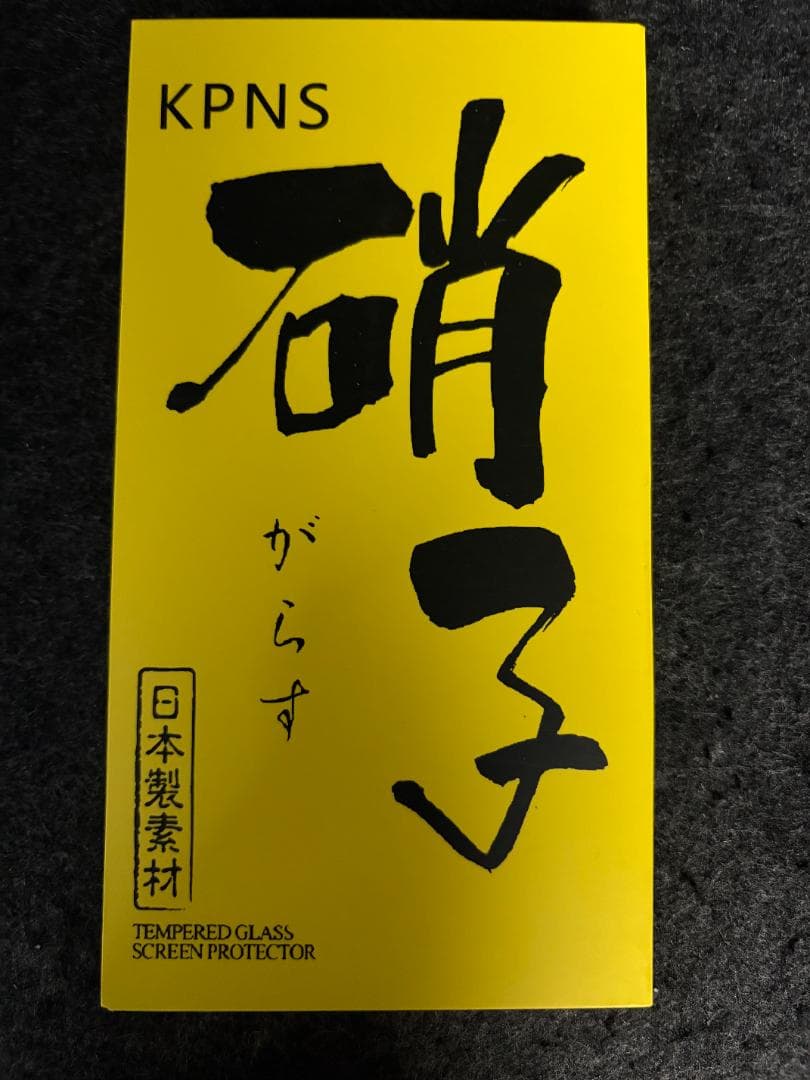 KPNS
硝子
がらす
日本製素材
TEMPERED GLASS
SCREEN PROTECTOR